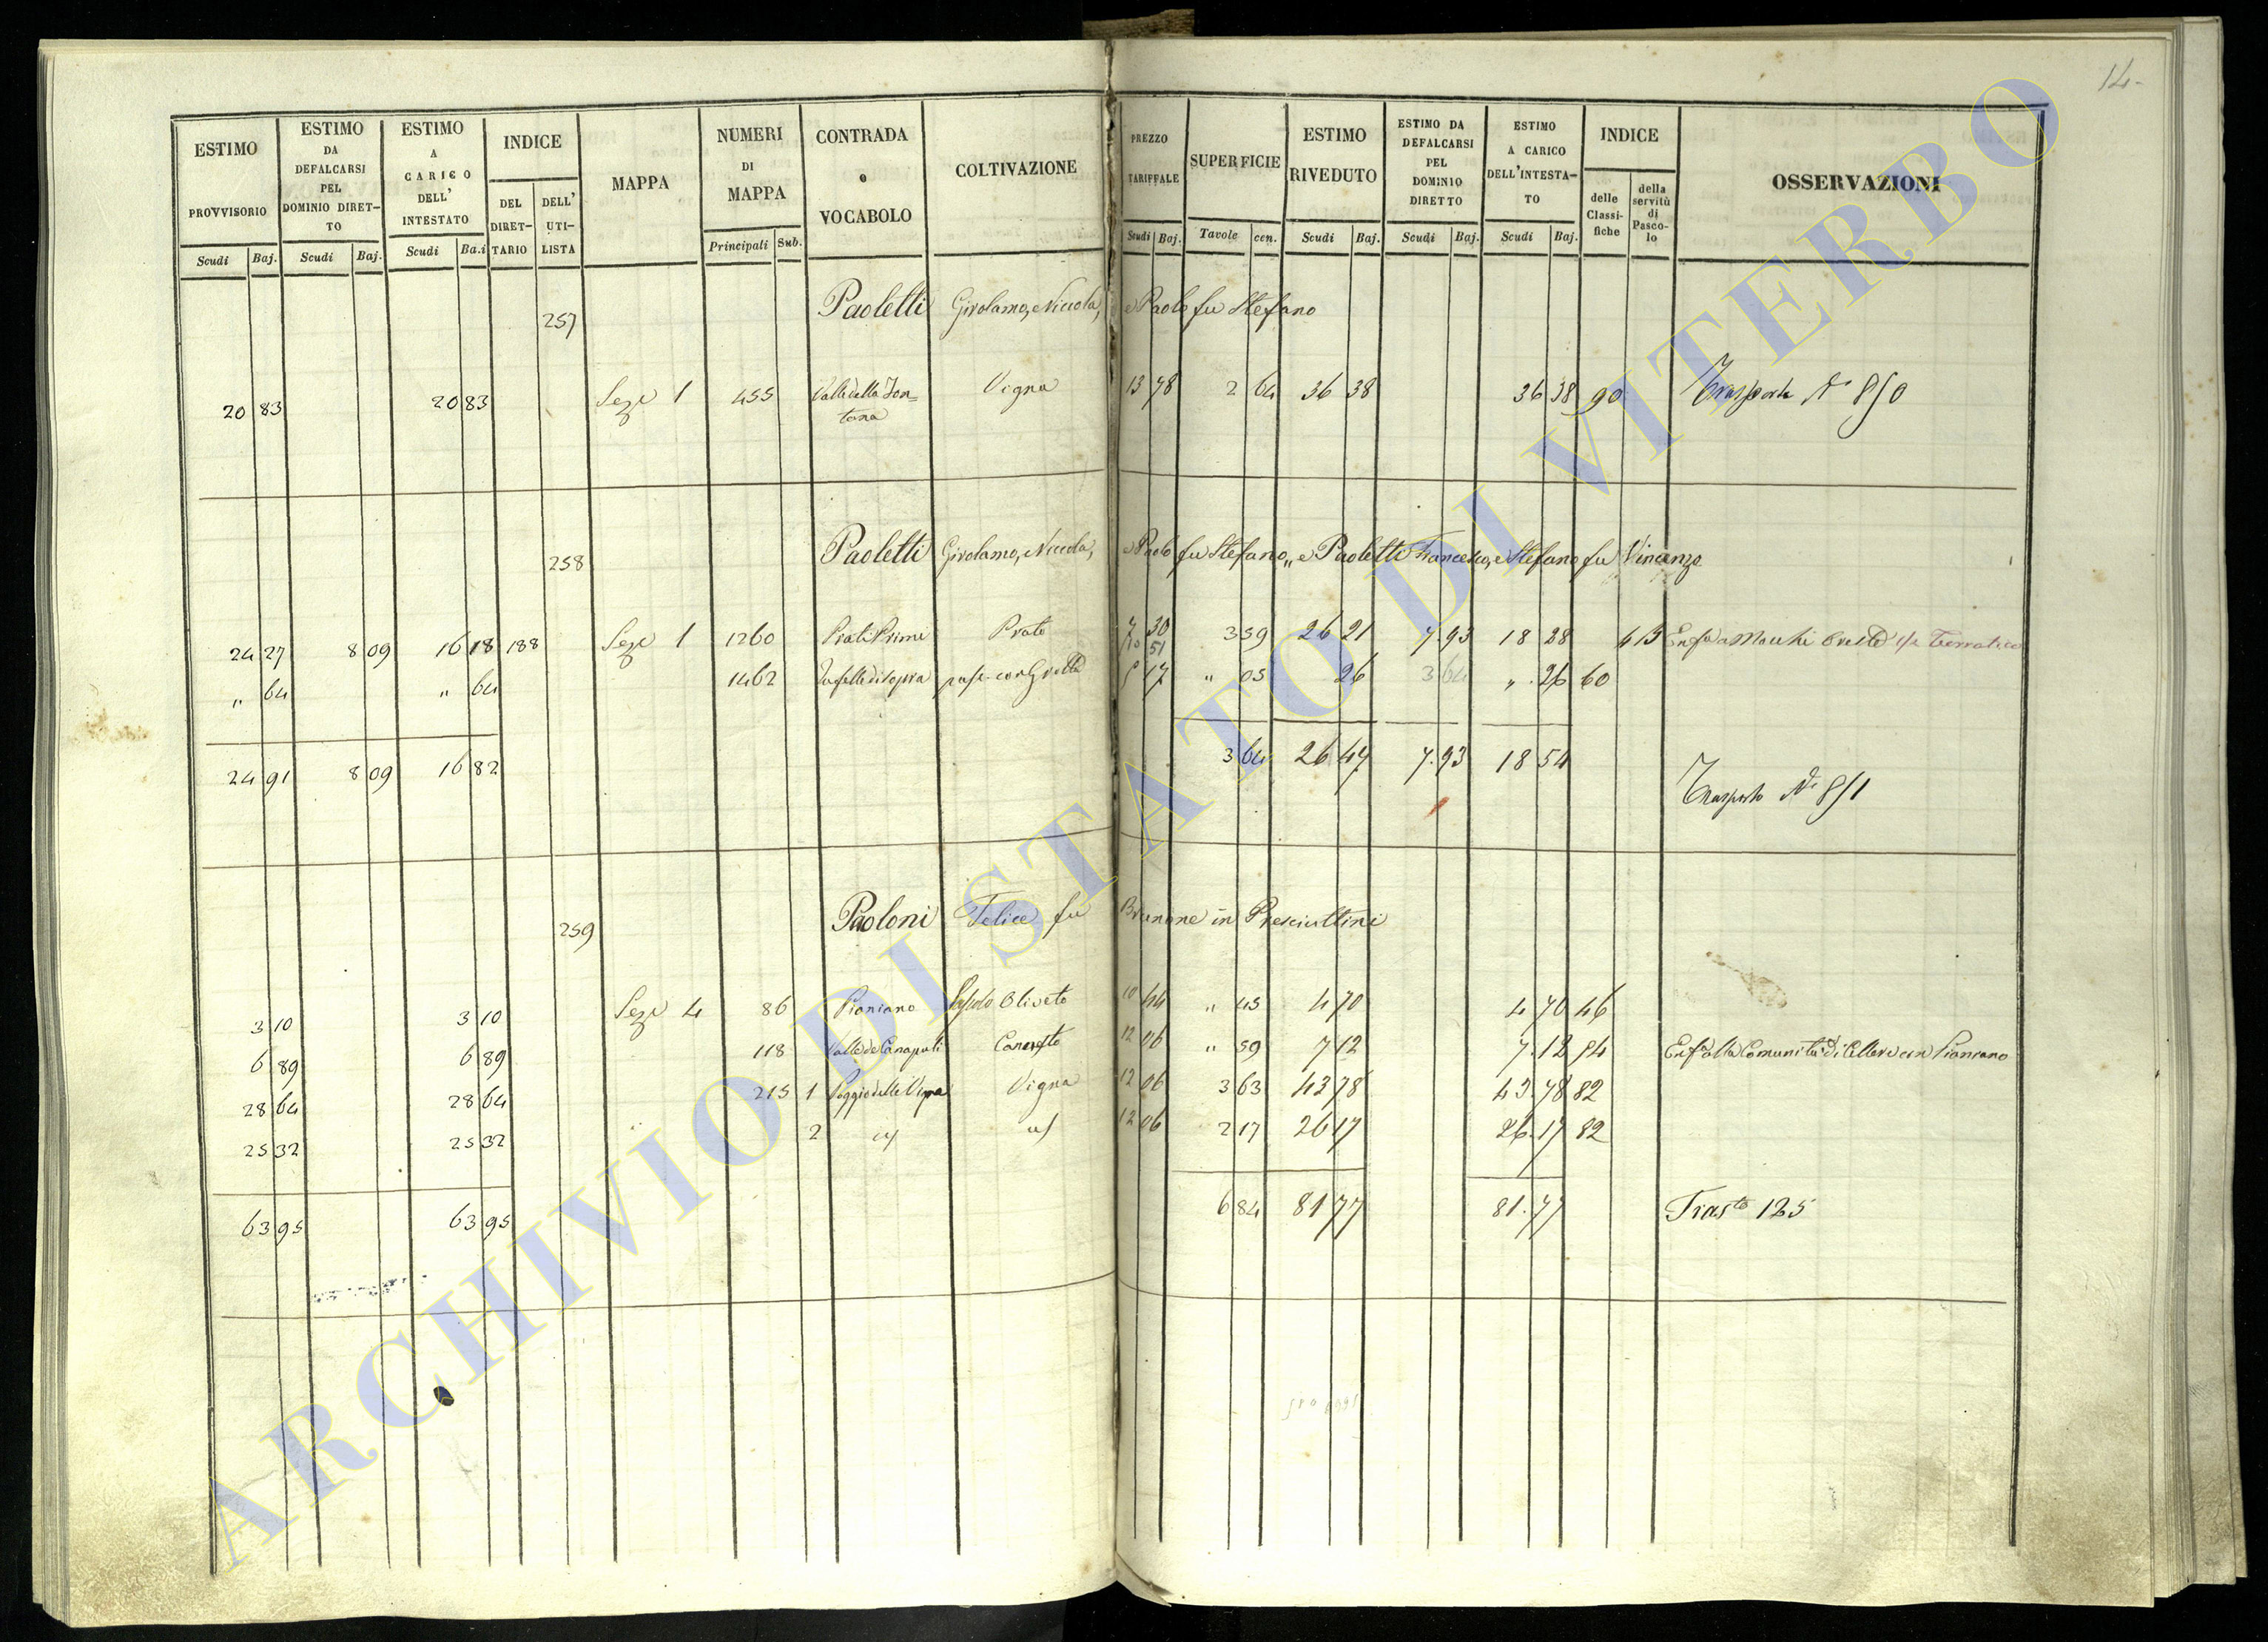 14.
ESTIMO PROVVISORIO | ESTIMO DA DEFALCARSI PEL DOMINIO DIRET-TO | ESTIMO A CARICO DELL' INTESTATO | INDICE | MAPPA | NUMERI DI MAPPA | CONTRADA o VOCABOLO | COLTIVAZIONE | PREZZO TARIFFALE | SUPERFICIE | ESTIMO RIVEDUTO | ESTIMO DA DEFALCARSI PEL DOMINIO DIRETTO | ESTIMO A CARICO DELL'INTESTA-TO | INDICE | OSSERVAZIONI
DEL DIRET-TARIO | DELL' UTI-LISTA | delle Classi-fiche | della servitù di Pasco-lo
Scudi Baj. | Scudi Baj. | Scudi Ba.i | Principali Sub. | Scudi Baj. | Tavole cen. | Scudi Baj. | Scudi Baj. | Scudi Baj.
257 Paoletti Girolamo, Niccola, e Paolo fu Stefano
20 83 | 20 83 | Sez.e 1 | 455 | Valle della Fon=tana | Vigna | 13 78 | 2 64 | 36 38 | 36 38 | 90 | Trasporto N.º 850
258 Paoletti Girolamo, Niccola, e Paolo fu Stefano, e Paoletti Francesco, e Stefano fu Vincenzo
24 27 | 8 09 | 16 18 | 188 | Sez.e 1 | 1260 | Prati Primi | Prato | 7 30 | 3 59 | 26 21 | 7.93 | 18 28
" 64 | " 64 | 1462 | 5 17 | " 05 | 26 | 3 64 | " 26 | 60
24 91 | 8 09 | 16 82 | 3 64 | 26 47 | 7.93 | 18 54
Trasporto N.º 851
259 Paoloni Felice fu Brunone in Presciuttini
3 10 | 3 10 | Sez.e 4 | 86 | Pianiano | Oliveto | 10 44 | " 45 | 4 70 | 4 70 | 46
6 89 | 6 89 | 118 | Valle de Canapuli | Caneto | 12 06 | " 59 | 7 12 | 7.12 | 54 | Enf.a alla Comunità di Cellere con Pianiano
28 64 | 28 64 | 215 | 1 | Poggio delle Vigne | Vigna | 12 06 | 3 63 | 43 78 | 43.78 | 82
25 32 | 25 32 | 2 | 12 06 | 2 17 | 26 17 | 26.17 | 82
63 95 | 63 95 | 6 84 | 81 77 | 81.77 | Tras.to 125
ARCHIVIO DI STATO DI VITERBO